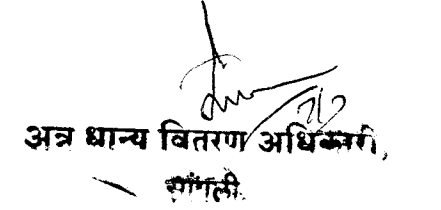 अन्न धान्य वितरण अधिकारी,
सांगली.